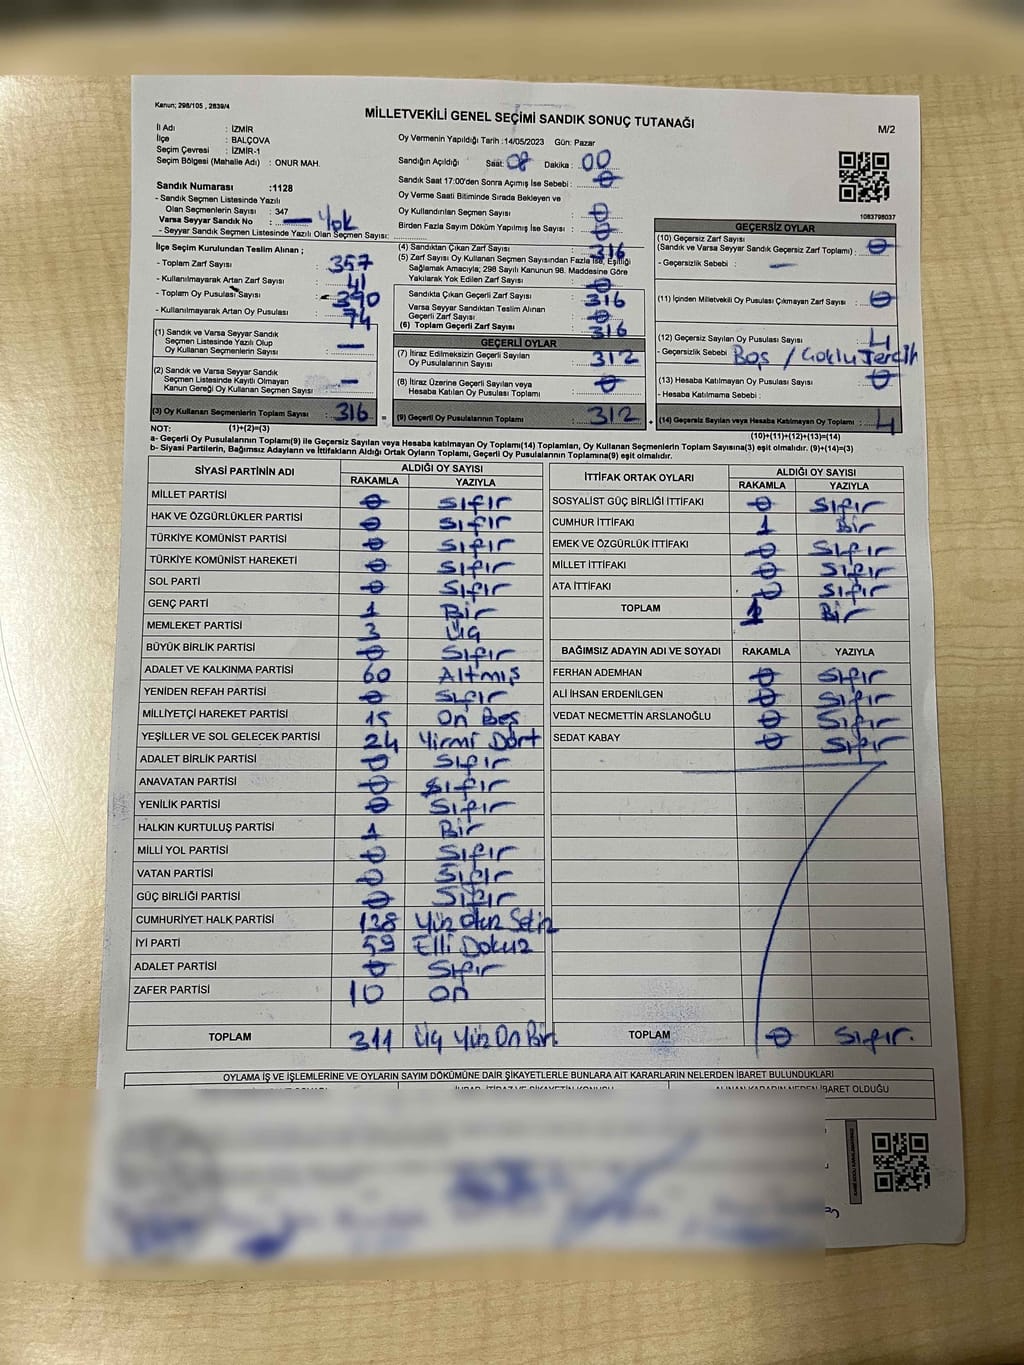 Kanun; 298/105 , 2839/4
MİLLETVEKİLİ GENEL SEÇİMİ SANDIK SONUÇ TUTANAĞI
M/2
İl Adı : İZMİR
İlçe : BALÇOVA
Seçim Çevresi : İZMİR-1
Seçim Bölgesi (Mahalle Adı) : ONUR MAH.
Oy Vermenin Yapıldığı Tarih :14/05/2023 Gün: Pazar
Sandığın Açıldığı Saat: 08 Dakika : 00
Sandık Saat 17:00'den Sonra Açılmış İse Sebebi : 0
Oy Verme Saati Bitiminde Sırada Bekleyen ve
Oy Kullandırılan Seçmen Sayısı : 0
Birden Fazla Sayım Döküm Yapılmış İse Sayısı : 0
1083798037
Sandık Numarası :1128
- Sandık Seçmen Listesinde Yazılı
Olan Seçmenlerin Sayısı : 347
Varsa Seyyar Sandık No : — Yok
- Seyyar Sandık Seçmen Listesinde Yazılı Olan Seçmen Sayısı:
İlçe Seçim Kurulundan Teslim Alınan ;
- Toplam Zarf Sayısı : 357
- Kullanılmayarak Artan Zarf Sayısı : 41
- Toplam Oy Pusulası Sayısı : 390
- Kullanılmayarak Artan Oy Pusulası : 74
(1) Sandık ve Varsa Seyyar Sandık
Seçmen Listesinde Yazılı Olup
Oy Kullanan Seçmenlerin Sayısı : —
(2) Sandık ve Varsa Seyyar Sandık
Seçmen Listesinde Kayıtlı Olmayan
Kanun Gereği Oy Kullanan Seçmen Sayısı : —
(3) Oy Kullanan Seçmenlerin Toplam Sayısı : 316
(4) Sandıktan Çıkan Zarf Sayısı : 316
(5) Zarf Sayısı Oy Kullanan Seçmen Sayısından Fazla İse, Eşitliği
Sağlamak Amacıyla; 298 Sayılı Kanunun 98. Maddesine Göre
Yakılarak Yok Edilen Zarf Sayısı : 0
Sandıkta Çıkan Geçerli Zarf Sayısı : 316
Varsa Seyyar Sandıktan Teslim Alınan
Geçerli Zarf Sayısı : 0
(6) Toplam Geçerli Zarf Sayısı : 316
GEÇERLİ OYLAR
(7) İtiraz Edilmeksizin Geçerli Sayılan
Oy Pusulalarının Sayısı : 312
(8) İtiraz Üzerine Geçerli Sayılan veya
Hesaba Katılan Oy Pusulası Sayısı : 0
= (9) Geçerli Oy Pusulalarının Toplamı : 312
GEÇERSİZ OYLAR
(10) Geçersiz Zarf Sayısı
(Sandık ve Varsa Seyyar Sandık Geçersiz Zarf Toplamı) : 0
- Geçersizlik Sebebi : —
(11) İçinden Milletvekili Oy Pusulası Çıkmayan Zarf Sayısı : 0
(12) Geçersiz Sayılan Oy Pusulası Sayısı : 4
- Geçersizlik Sebebi : Boş / Çoklu Tercih
(13) Hesaba Katılmayan Oy Pusulası Sayısı : 0
- Hesaba Katılmama Sebebi :
+ (14) Geçersiz Sayılan veya Hesaba Katılmayan Oy Toplamı : 4
NOT: (1)+(2)=(3)
(10)+(11)+(12)+(13)=(14)
a- Geçerli Oy Pusulalarının Toplamı(9) ile Geçersiz Sayılan veya Hesaba katılmayan Oy Toplamı(14) Toplamları, Oy Kullanan Seçmenlerin Toplam Sayısına(3) eşit olmalıdır. (9)+(14)=(3)
b- Siyasi Partilerin, Bağımsız Adayların ve İttifakların Aldığı Ortak Oyların Toplamı, Geçerli Oy Pusulalarının Toplamına(9) eşit olmalıdır.
SİYASİ PARTİNİN ADI ALDIĞI OY SAYISI
RAKAMLA YAZIYLA
MİLLET PARTİSİ 0 Sıfır
HAK VE ÖZGÜRLÜKLER PARTİSİ 0 Sıfır
TÜRKİYE KOMÜNİST PARTİSİ 0 Sıfır
TÜRKİYE KOMÜNİST HAREKETİ 0 Sıfır
SOL PARTİ 0 Sıfır
GENÇ PARTİ 1 Bir
MEMLEKET PARTİSİ 3 Üç
BÜYÜK BİRLİK PARTİSİ 0 Sıfır
ADALET VE KALKINMA PARTİSİ 60 Altmış
YENİDEN REFAH PARTİSİ 0 Sıfır
MİLLİYETÇİ HAREKET PARTİSİ 15 On Beş
YEŞİLLER VE SOL GELECEK PARTİSİ 24 Yirmi Dört
ADALET BİRLİK PARTİSİ 0 Sıfır
ANAVATAN PARTİSİ 0 Sıfır
YENİLİK PARTİSİ 0 Sıfır
HALKIN KURTULUŞ PARTİSİ 1 Bir
MİLLİ YOL PARTİSİ 0 Sıfır
VATAN PARTİSİ 0 Sıfır
GÜÇ BİRLİĞİ PARTİSİ 0 Sıfır
CUMHURİYET HALK PARTİSİ 138 Yüz Otuz Sekiz
İYİ PARTİ 59 Elli Dokuz
ADALET PARTİSİ 0 Sıfır
ZAFER PARTİSİ 10 On
TOPLAM 311 Üç Yüz On Bir
İTTİFAK ORTAK OYLARI ALDIĞI OY SAYISI
RAKAMLA YAZIYLA
SOSYALİST GÜÇ BİRLİĞİ İTTİFAKI 0 Sıfır
CUMHUR İTTİFAKI 1 Bir
EMEK VE ÖZGÜRLÜK İTTİFAKI 0 Sıfır
MİLLET İTTİFAKI 0 Sıfır
ATA İTTİFAKI 0 Sıfır
TOPLAM 1 Bir
BAĞIMSIZ ADAYIN ADI VE SOYADI RAKAMLA YAZIYLA
FERHAN ADEMHAN 0 Sıfır
ALİ İHSAN ERDENİLGEN 0 Sıfır
VEDAT NECMETTİN ARSLANOĞLU 0 Sıfır
SEDAT KABAY 0 Sıfır
TOPLAM 0 Sıfır.
OYLAMA İŞ VE İŞLEMLERİNE VE OYLARIN SAYIM DÖKÜMÜNE DAİR ŞİKAYETLERLE BUNLARA AİT KARARLARIN NELERDEN İBARET BULUNDUKLARI
ALINAN KARARIN NEDEN İBARET OLDUĞU